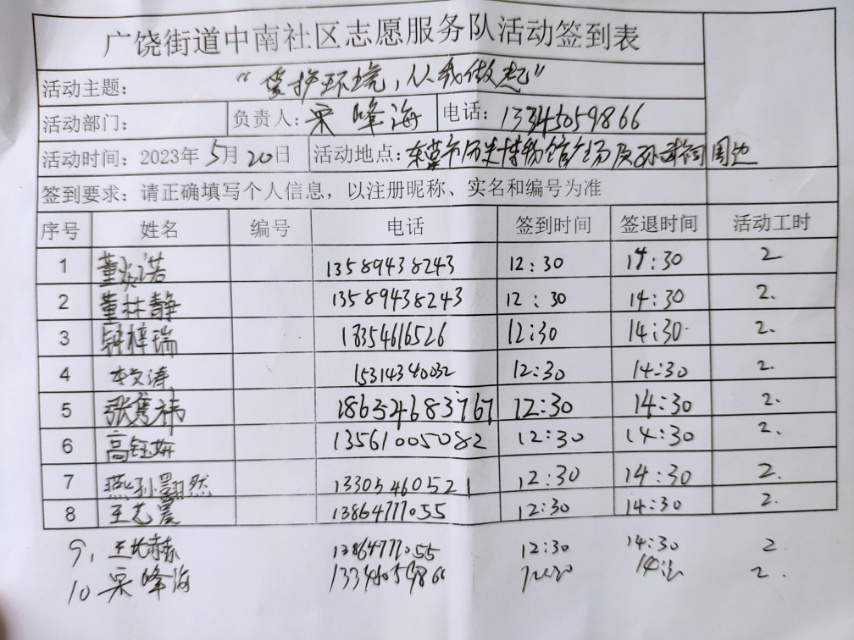 广饶街道中南社区志愿服务队活动签到表
活动主题： “爱护环境，从我做起”
活动部门： 负责人：宋峰海 电话：13345059866
活动时间：2023年5月20日 活动地点：东营市历史博物馆广场及孙武祠周边
签到要求：请正确填写个人信息，以注册昵称、实名和编号为准
序号 姓名 编号 电话 签到时间 签退时间 活动工时
1 董 诺 13589438243 12:30 14:30 2
2 董桂静 13589438243 12:30 14:30 2.
3 钟梓瑞 12:30 14:30. 2.
4 文涛 15314340032 12:30 14:30 2.
5 张隽祎 18654683767 12:30 14:30 2.
6 高钰妍 13561005082 12:30 14:30 2.
7 燕孙翾然 13305460521 12:30 14:30 2.
8 王艺晨 13864777055 12:30 14:30 2.
9, 王 赫 13864777055 12:30 14:30 2
10 宋峰海 2.